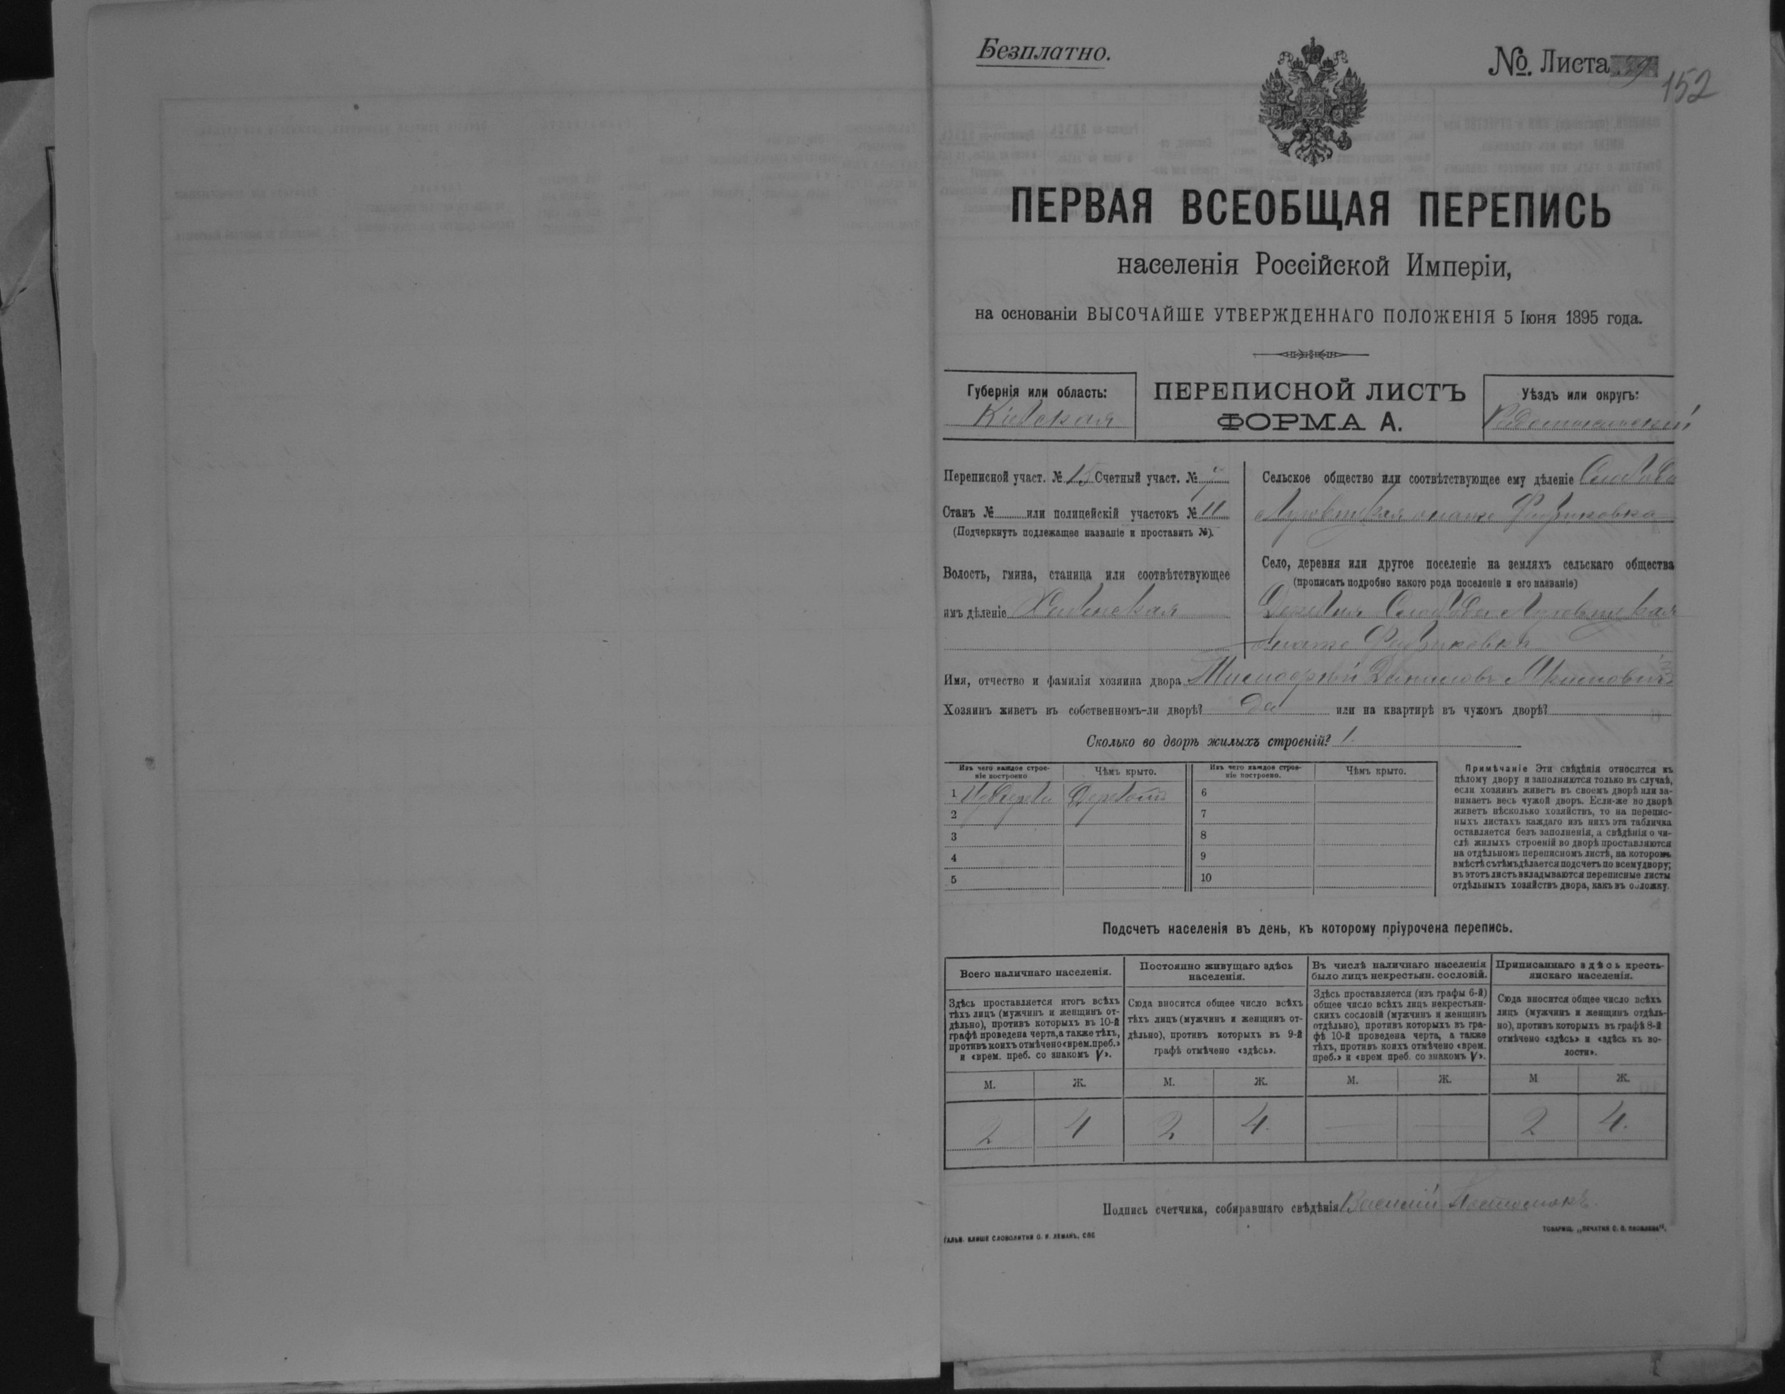 Безплатно.
№. Листа
152
ПЕРВАЯ ВСЕОБЩАЯ ПЕРЕПИСЬ
населенія Россійской Имперіи,
на основаніи ВЫСОЧАЙШЕ УТВЕРЖДЕННАГО ПОЛОЖЕНІЯ 5 Іюня 1895 года.
Губернія или область:
Кіевская
ПЕРЕПИСНОЙ ЛИСТЪ
ФОРМА А.
Уѣздъ или округъ:
Радомысльскій
Переписной участ. № 15 Счетный участ. №
Станъ № или полицейскій участокъ № 11
(Подчеркнуть подлежащее названіе и проставить №).
Волость, гмина, станица или соотвѣтствующее
имъ дѣленіе Хабенская
Сельское общество или соотвѣтствующее ему дѣленіе Слобода
Село, деревня или другое поселеніе на земляхъ сельскаго общества
(прописать подробно какого рода поселеніе и его названіе)
Деревня Слобода
Имя, отчество и фамилія хозяина двора Данилов
Хозяинъ живетъ въ собственномъ-ли дворѣ? да или на квартирѣ въ чужомъ дворѣ?
Сколько во дворѣ жилыхъ строеній? 1.
Изъ чего каждое строе-
ніе построено
Чѣмъ крыто.
Изъ чего каждое строе-
ніе построено.
Чѣмъ крыто.
1 Издерева
6
2
7
3
8
4
9
5
10
Примѣчаніе Эти свѣдѣнія относятся къ
цѣлому двору и заполняются только въ случаѣ,
если хозяинъ живетъ въ своемъ дворѣ или за-
нимаетъ весь чужой дворъ. Если-же во дворѣ
живетъ нѣсколько хозяйствъ, то на перепис-
ныхъ листахъ каждаго изъ нихъ эта табличка
оставляется безъ заполненія, а свѣдѣнія о чи-
слѣ жилыхъ строеній во дворѣ проставляются
на отдѣльномъ переписномъ листѣ, на которомъ
вмѣстѣ съ тѣмъ дѣлается подсчетъ по всему двору;
въ этотъ листъ вкладываются переписные листы
отдѣльныхъ хозяйствъ двора, какъ въ обложку.
Подсчетъ населенія въ день, къ которому пріурочена перепись.
Всего наличнаго населенія.
Здѣсь проставляется итогъ всѣхъ
тѣхъ лицъ (мужчинъ и женщинъ от-
дѣльно), противъ которыхъ въ 10-й
графѣ проведена черта, а также тѣхъ,
противъ коихъ отмѣчено «врем. преб.»
и «врем. преб. со знакомъ V».
М. Ж.
2 4
Постоянно живущаго здѣсь
населенія.
Сюда вносится общее число всѣхъ
тѣхъ лицъ (мужчинъ и женщинъ от-
дѣльно), противъ которыхъ въ 9-й
графѣ отмѣчено «здѣсь».
М. Ж.
2 4.
Въ числѣ наличнаго населенія
было лицъ некрестьян. сословій.
Здѣсь проставляется (изъ графы 6-й)
общее число всѣхъ лицъ некрестьян-
скихъ сословій (мужчинъ и женщинъ
отдѣльно), противъ которыхъ въ гра-
фѣ 10-й проведена черта, а также
тѣхъ, противъ коихъ отмѣчено «врем.
преб.» и «врем преб. со знакомъ V».
М. Ж.
— —
Приписаннаго здѣсь кресть-
янскаго населенія.
Сюда вносится общее число всѣхъ
лицъ (мужчинъ и женщинъ отдѣль-
но), противъ которыхъ въ графѣ 8-й
отмѣчено «здѣсь» и «здѣсь къ во-
лости».
М Ж.
2 4.
Подпись счетчика, собиравшаго свѣдѣнія Василий
ГАЛЬВ. КЛИШЕ СЛОВОЛИТНИ О. И. ЛЕМАНЪ, СПБ
ТОВАРИЩ. „ПЕЧАТНЯ С. П. ЯКОВЛЕВА".